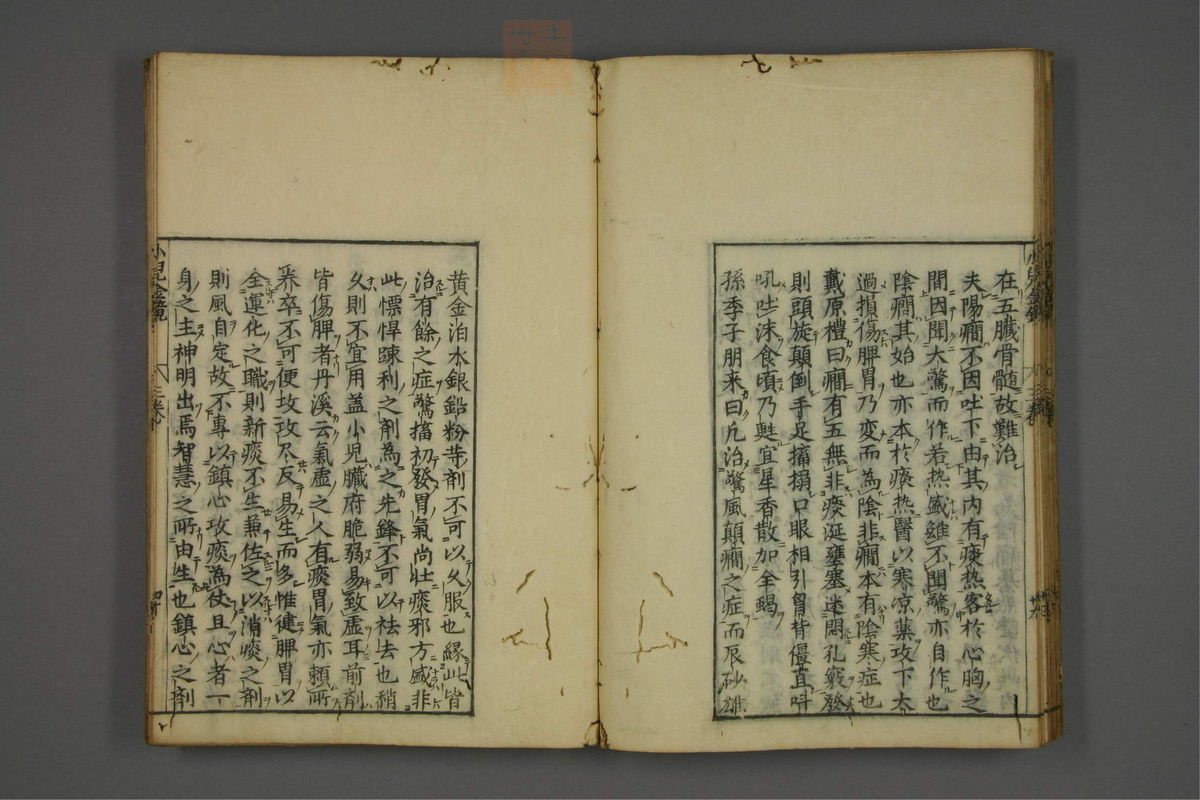 在五臟骨髓故難治
夫陽癇不因吐下由其內有痰热客於心胸之
間因聞大驚而作若热盛雖不聞驚亦自作也
陰癇其始也亦本於痰热醫以寒凉藥攻下太
過損傷脾胃乃変而為陰非癇本有陰寒症也
戴原禮曰癇有五無非痰涎壅塞迷悶孔竅發
則頭旋顛倒手足搐搦口眼相引胷背僵直叫
吼吐沫食頃乃甦宜星香散加全蝎
孫季子朋来曰凢治驚風顛癇之症而辰砂雄
黄金泊水銀鉛粉䓁剤不可以久服也緣此皆
治有餘之症驚搐初發胃氣尚壯痰邪方盛非
此慓悍踈利之剤為之先鋒不可以祛去也稍
久則不宜用盖小児臓府脆弱易致虛耳前剤
皆傷脾者丹溪云氣虛之人有痰胃氣亦賴所
养卒不可便攻攻尽反易生而多惟健脾胃以
全運化之職則新痰不生兼佐之以消痰之剤
則風自定故不專以鎮心攻痰為仗且心者一
身之主神明出焉智慧之所由生也鎮心之剤
小兒金鏡
三卷